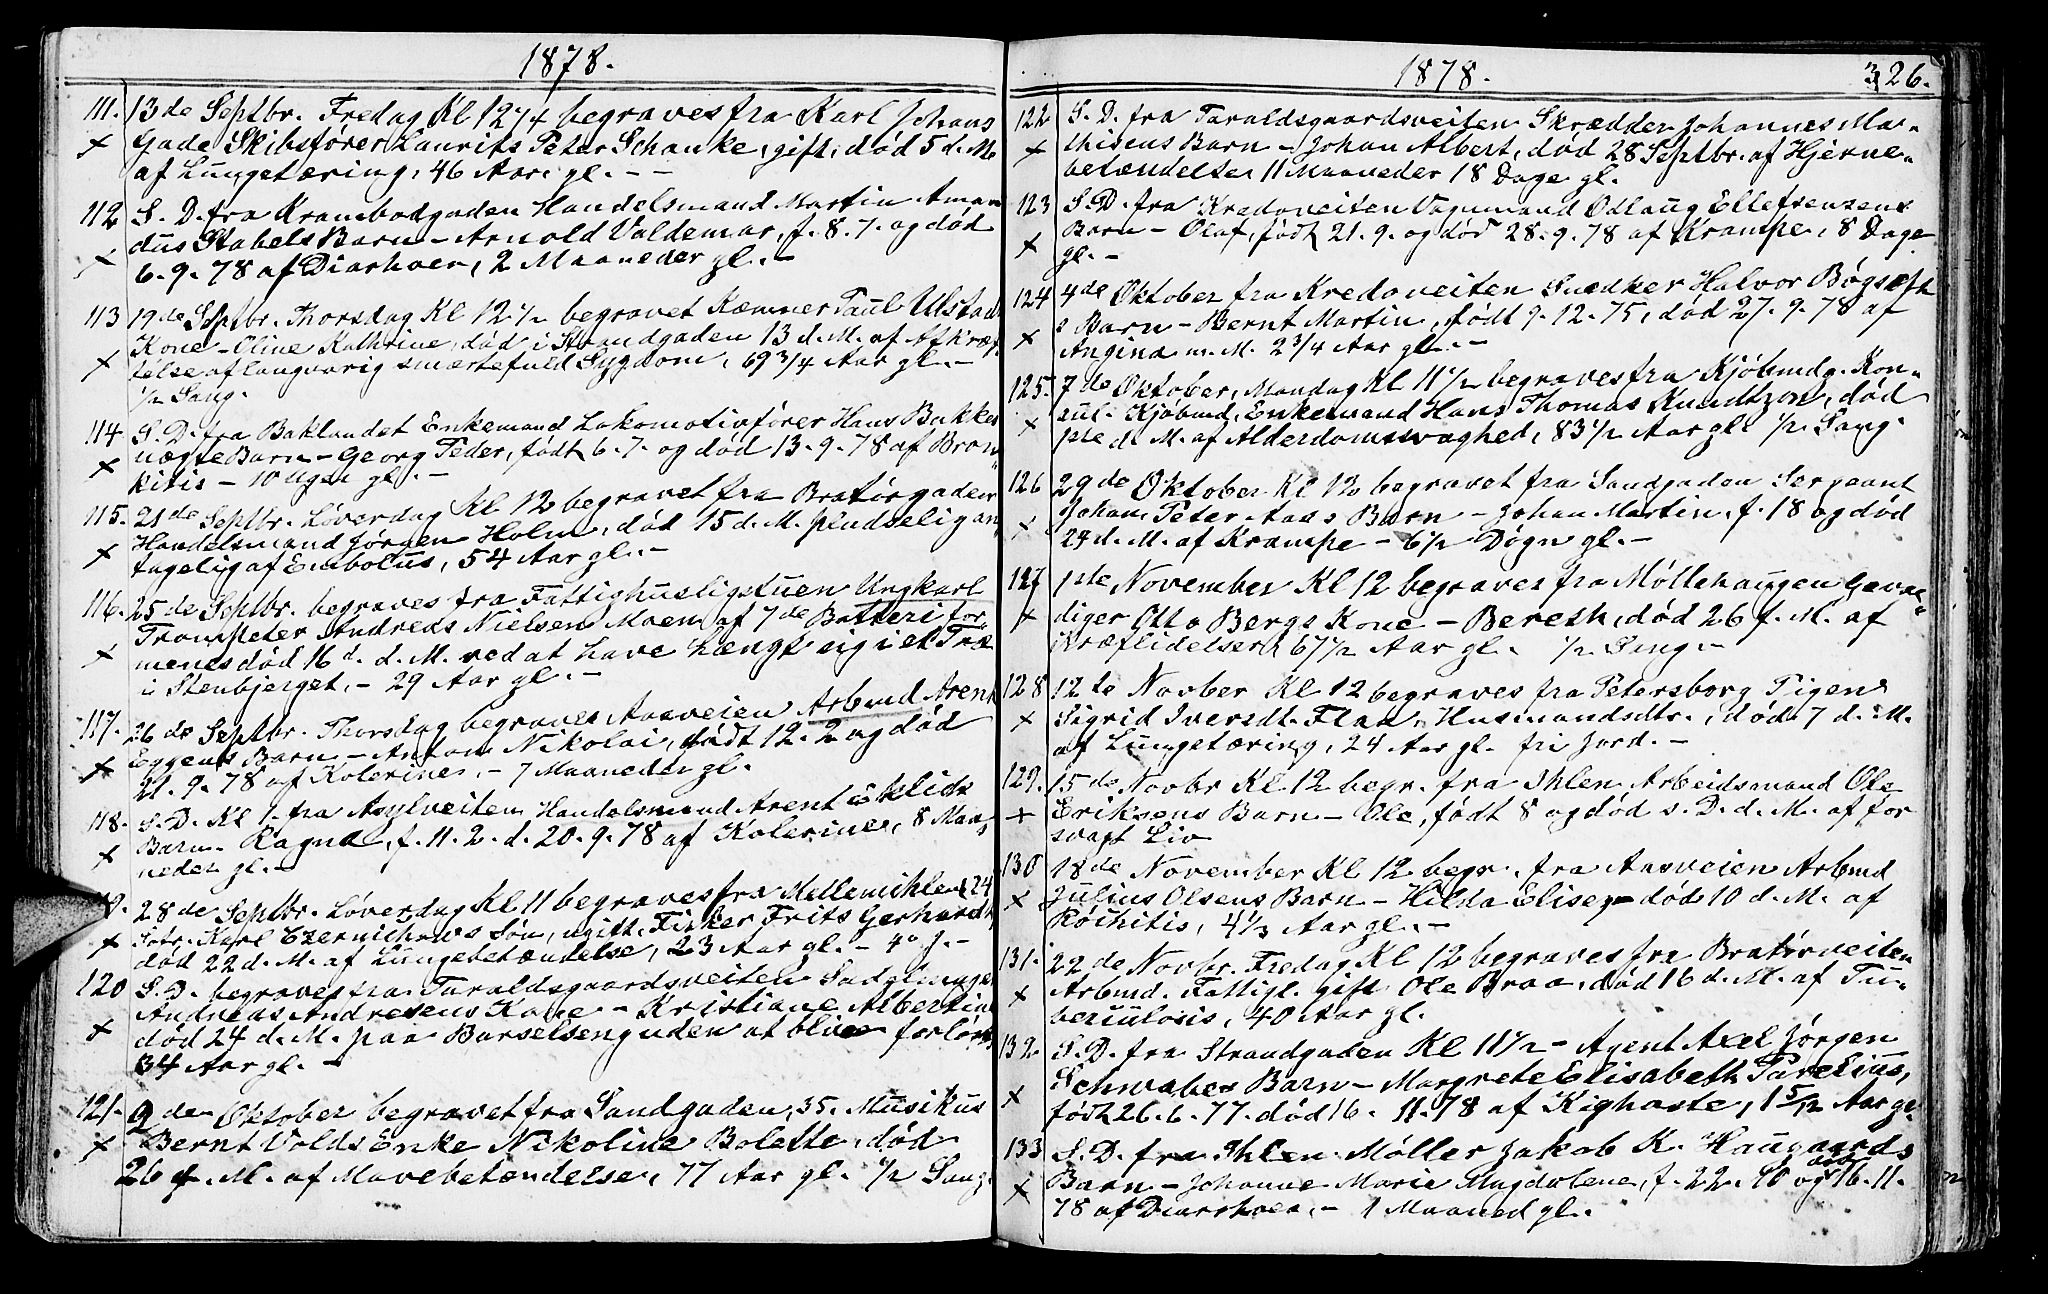 1878.
111. 13de Septbr. Fredag Kl 12 1/4 begraves fra Karl Johans
Gade Skibsfører Laurits Peter Schanke, gift, død 5 d. M.
af Lungetæring, 46 Aar gl. - -
112 S. D. fra Krambodgaden Handelsmand Martin Aman
dus Stabels Barn - Arnold Valdemar, f. 8. 7. og død
6. 9. 78 af Diarhoer, 2 Maaneder gl. -
113 19de Septbr. Thorsdag Kl 12 1/2 begravet Kæmner Paul Ulstad
Kone - Oline Kathrine, død i Strandgaden 13 d. M. af Afkræf
telse af langvarig smertefuld Sygdom, 69 3/4 Aar gl. -
1/2 Sang.
114 S. D. fra Baklandet Enkemand Lokomotivfører Hans Bakkes
uægte Barn - Georg Peder, født 6. 7. og død 13. 9. 78 af Bron
kitis - 10 Uger gl. -
115. 21de Septbr. Løverdag Kl 12 begravet fra Bratørgaden
Handelsmand Jørgen Holm, død 15 d. M. pludselig an
tagelig af Embolus, 54 Aar gl. -
116. 25de Septbr. begraves fra Fattighusligstuen Ungkarl
Trompeter Andreas Nielsen Moen af 7de Batteri for
menes død 16 d. d. M. ved at have hængt sig i et Træ
i Stenbjerget, - 29 Aar gl. -
117. 26de Septbr. Thorsdag begraves Aasveien Arbmd Arent
Eggens Barn - Anton Nikolai, født 12. 2 og død
21. 9. 78 af Kolerine, - 7 Maaneder gl.
118. S. D. Kl 1 fra Asylveiten Handelsmand Arent Eklids
Barn - Ragna, f. 11. 2. d. 20. 9. 78 af Kolerine, 8 Maa
neder gl. -
28de Septbr. Løverdag Kl 11 begraves fra Mellemihlen 24
Fotr. Karl Czernichows Søn, ugift, Fisker Frits Gerhardt,
død 22 d. M. af Lungebetændelse, 23 Aar gl. -
120 S. D. begraves fra Taraldsgaardsveiten
Andreas Andresens Kone - Kristiane Albertine
død 24 d. M. paa Barselseng uden at blive forløst,
34 Aar gl. -
121. 9de Oktober begravet fra Sandgaden, 35. Musikus
Bernt Volds Enke Nikoline Bolette, død
26 f. M. af Mavebetændelse, 77 Aar gl. 1/2 Sang.
1878. 326.
122 S. D. fra Taraldsgaardsveiten Skrædder Johannes Ma-
thisens Barn - Johan Albert, død 28 Septbr. af Hjerne-
betændelse 11 Maaneder 18 Dage gl.
123 S. D. fra Kredoveiten Vognmand Odlaug Ellefsensens
Barn - Olaf, født 21. 9. og død 28. 9. 78 af Krampe, 8 Dage
gl. -
124 4de Oktober fra Kredoveiten Snedker Halvor Bøgseth
s Barn - Bernt Martin, født 9. 12. 75, død 27. 9. 78 af
Angina m. M. 2 3/4 Aar gl. -
125. 7de Oktober, Mandag Kl 11 1/2 begraves fra Kjøbmdg. Kon-
sul. Kjøbmd, Enkemand Hans Thomas Knudtzon, død
1ste d. M. af Alderdomssvaghed, 83 1/2 Aar gl. 1/2 Sang.
126 29de Oktober Kl 12 begravet fra Sandgaden Sergeant
Johan Peter Aas s Barn - Johan Martin, f. 18 og død
24 d. M. af Krampe - 6 1/2 Døgn gl. -
127 1ste November Kl 12 begraves fra Møllehaugen Gevæ-
diger Otto Bergs Kone - Bereth, død 26 f. M. af
Kræftlidelser, 67 1/2 Aar gl. 1/2 Sang. -
128 12te Novber Kl 12 begraves fra Petersborg Pigen
Sigrid Iversdt. Flaa, Husmandsdtr., død 7 d. M.
af Lungetæring, 24 Aar gl. fri Jord. -
129. 15de Novbr Kl 12 begr. fra Ihlen Arbeidsmand Ole
Eriksens Barn - Ole, født 8 og død s. D. d. M. af for
svagt Liv
130 18de November Kl 12 begr. fra Aasveien Arbmd
Julius Olsens Barn - Hilda Elise, - død 10 d. M. af
Rachitis, 4 1/3 Aar gl. -
131. 22de Novbr. Fredag Kl 12 begraves fra Bratørveiten
Arbmd. Fattigl. gift Ole Braa, død 16 d. M. af Tu-
berculosis, 40 Aar gl.
132. S. D. fra Strandgaden Kl 11 1/2 - Agent Axel Jørgen
Schwabes Barn - Margrete Elisabeth
født 26. 6. 77. død 16. 11. 78 af Kighoste, 1 5/12 Aar gl.
133 S. D. fra Ihlen Møller Jakob K. Haugaards
Barn - Johanne Marie Magdalene, f. 22. 10 og død 16. 11.
78 af Diarrhoea, - 1 Maaned gl.